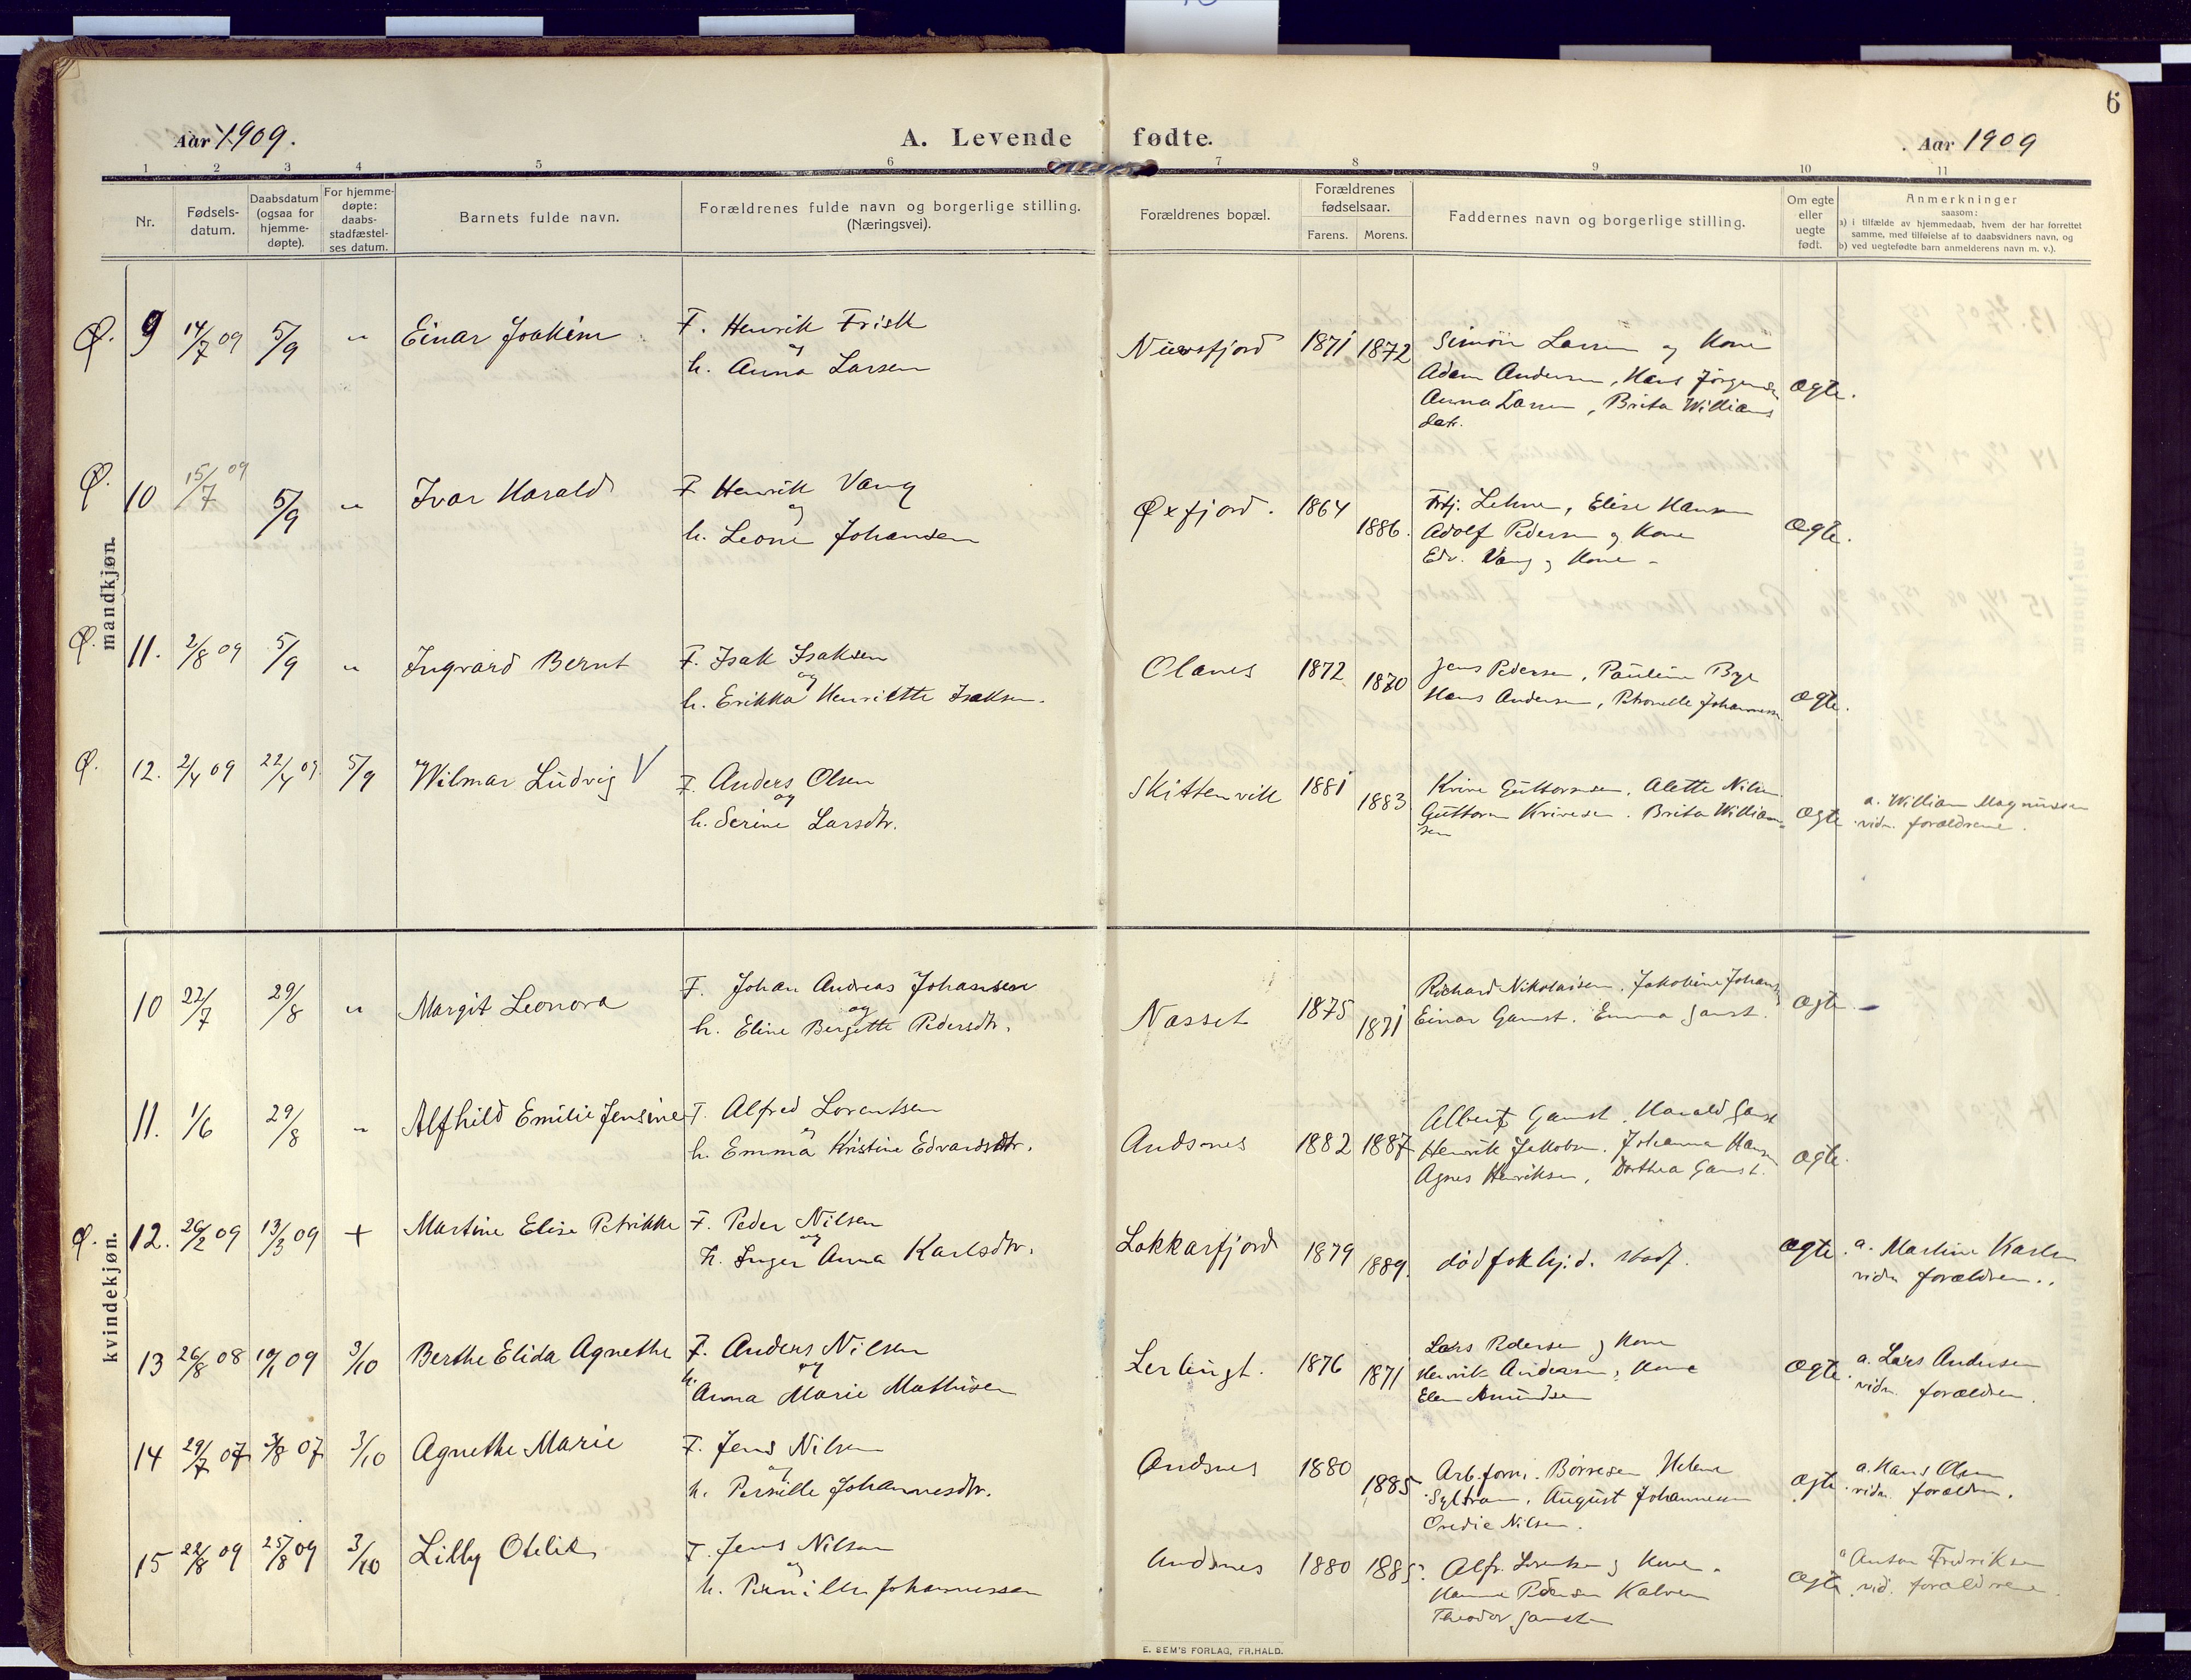 6
Aar 1909.
A. Levende fødte.
Aar 1909
1 2 3 4 5 6 7 8 9 10 11
Nr.
Fødsels-
datum.
Daabsdatum
(ogsaa for
hjemme-
døpte).
For hjemme-
døpte:
daabs-
stadfæstel-
ses datum.
Barnets fulde navn.
Forældrenes fulde navn og borgerlige stilling.
(Næringsvei).
Forældrenes bopæl.
Forældrenes
fødselsaar.
Farens. Morens.
Faddernes navn og borgerlige stilling.
Om egte
eller
uegte
født.
Anmerkninger
saasom:
a) i tilfælde av hjemmedaab, hvem der har forrettet
samme, med tilføielse af to daabsvidners navn, og
b) ved uegtefødte barn anmelderens navn m. v.).
mandkjøn.
Ø. 9 14/7 09 5/9 " Einar Joakim
F. Henrik Frisk
og
h. Anna Larsen
1871 1872
Simon Larsen og Kone
Adam Andersen, Hans Jørgensen
Anna Larsen, Brita Williams
datr.
ægte.
Ø. 10 15/7 09 5/9 " Ivar Harald
F Henrik Vang
og
h. Leone Johansen
Øxfjord. 1864 1886.
Lehne, Elise Hansen
Adolf Pedersen og Kone
Edv. Vang og Kone
ægte.
Ø. 11. 2/8 09 5/9 " Ingvard Bernt
F. Isak Isaksen
og
h. Erikka Henriette Isaksen.
Olanes 1872 1870
Jens Pedersen, Pauline
Hans Andersen, Petronelle Johannessen
ægte.
Ø. 12. 2/4 09 22/4 09 5/9 Wilmar Ludvig V
F. Anders Olsen
og
h. Serine Larsdtr.
Skittenvik 1881 1883
Krive Guttormsen, Alette Nilsen
Guttorm Krivesen. Brita William-
sen
ægte
a. William Magnussen
vidn. forældrene.
kvindekjøn.
10 22/7 29/8 " Margit Leonora
F. Johan Andreas Johansen
og
h. Eline Bergitte Pedersdtr.
Næsset 1875 1871
Richard Nikolaisen. Jakobine Johans
Einar Gamst. Emma Gamst.
ægte
11. 1/6 29/8 " Alfhild Emilie Jensine
F. Alfred Lorentsen
og
h. Emma Kristine Edvardsdtr.
Andsnes 1882 1887
Albert Gamst. Harald Gamst
Henrik Jakobsen. Johanna Hansen
Agnes Henriksen, Dorthea Gamst.
ægte
Ø. 12. 26/2 09 13/3 09 + Martine Elise Petrikke
F. Peder Nilsen
og
h. Inger Anna Karlsdtr.
Lokkarfjord 1879 1889.
død før hj.d. stadf.
ægte
a. Martine Karlsen
vidn forældren..
13 26/8 08 10/1 09 3/10 Berthe Elida Agnethe
F. Anders Nilsen
og
h. Anna Marie Mathisen
Lerbugt. 1876 1871
Lars Pedersen og Kone
Henrik Andersen, Kone
Elen Amundsen
ægte.
a. Lars Andersen
vidn. forældren.
14 29/7 07 3/8 07 3/10 Agnethe Marie
F. Jens Nilsen
og
h. Pernille Johannesdtr.
Andsnes 1880 1885
Arb.form. Børresen Helene
August Johannessen
Oredie Nilsen.
ægte.
a. Hans Olsen
vidn. forældren.
15 22/8 09 25/8 09 3/10 Lilly Otelie
F. Jens Nilsen
og
h. Pernille Johannessen
Andsnes 1880 1885.
Alfr. Lorentsen og Kone.
Hanne Pedersen Kalven
Theodor Gamst
ægte
a Anton Fredriksen
vid. forældrene.
E. SEM'S FORLAG, FR.HALD.